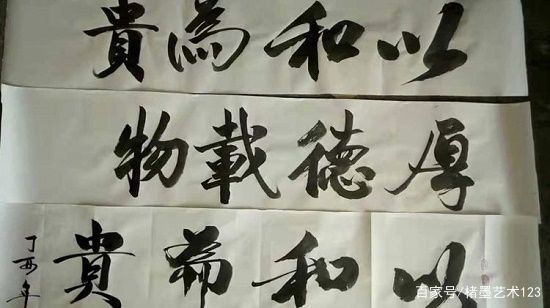 以和為貴
厚德載物
以和為貴
丁酉年
百家号/楮墨艺术123